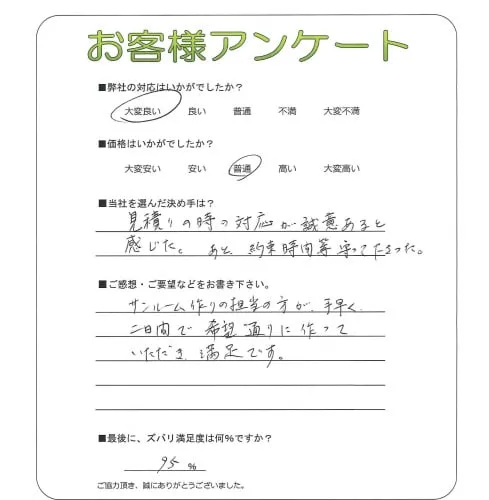 お客様アンケート
■弊社の対応はいかがでしたか？
大変良い 良い 普通 不満 大変不満
■価格はいかがでしたか？
大変安い 安い 普通 高い 大変高い
■当社を選んだ決め手は？
見積りの時の対応が誠意あると
感じた。あと、約束時間等守ってたさった。
■ご感想・ご要望などをお書き下さい。
サンルーム作りの担当の方が、手早く、
二日間で希望通りに作って
いただき、満足です。
■最後に、ズバリ満足度は何%ですか？
95 %
ご協力頂き、誠にありがとうございました。